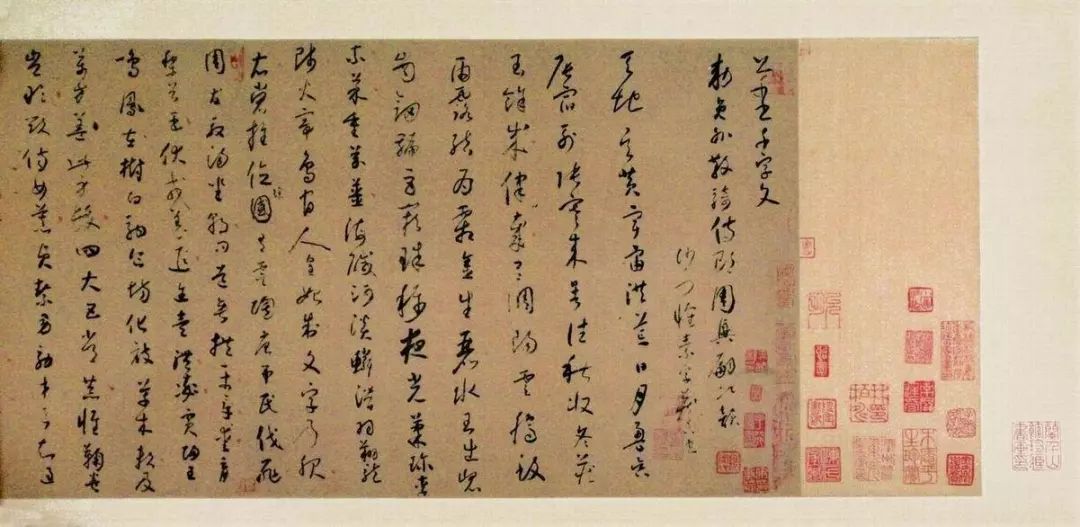 草書千字文
勅員外散騎侍郎周興嗣次韻
沙門懷素字藏真也
天地玄黃宇宙洪荒日月盈昃
辰宿列張寒來暑往秋收冬藏
閏餘成歲律呂調陽雲騰致
雨露結為霜金生麗水玉出崐
崗劍號巨闕珠稱夜光菓珍李
柰菜重芥薑海鹹河淡鱗潛羽翔龍
師火帝鳥官人皇始制文字乃服
衣裳推位讓國有虞陶唐弔民伐罪
周發殷湯坐朝問道垂拱平章愛育
黎首臣伏戎羌遐邇壹體率賓歸王
鳴鳳在樹白駒食場化被草木賴及
萬方蓋此身髮四大五常恭惟鞠養
豈敢毀傷女慕貞潔男效才良知過